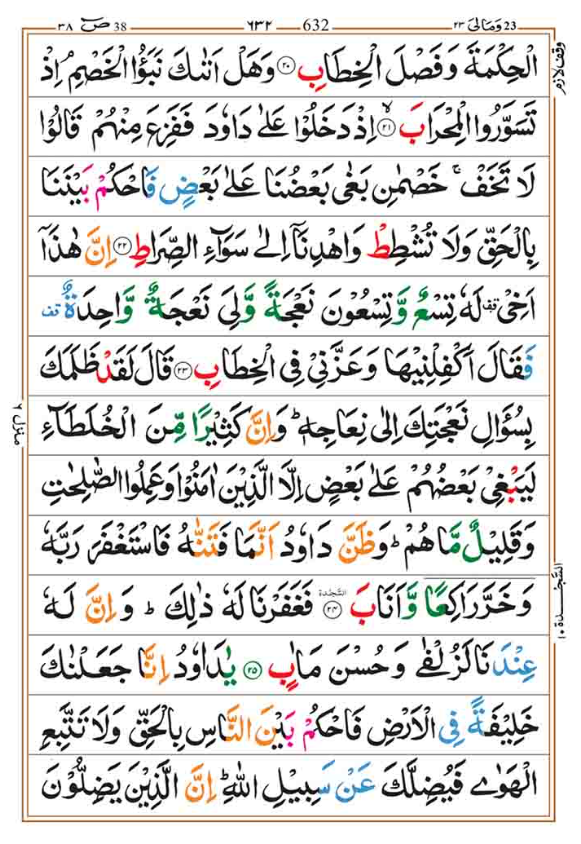 ٣٨ صٓ 38 ٦٣٢ 632 ٢٣ وَمَالِیَ 23
الْحِكْمَةَ وَفَصْلَ الْخِطَابِ ۝٢٠ وَهَلْ اَتٰىكَ نَبَؤُا الْخَصْمِ اِذْ
وقف لازم
تَسَوَّرُوا الْمِحْرَابَ ۝٢١ۙ اِذْ دَخَلُوْا عَلٰی دَاوٗدَ فَفَزِعَ مِنْهُمْ قَالُوْا
لَا تَخَفْ ۚ خَصْمٰنِ بَغٰی بَعْضُنَا عَلٰی بَعْضٍ فَاحْكُمْ بَيْنَنَا
بِالْحَقِّ وَلَا تُشْطِطْ وَاهْدِنَاۤ اِلٰی سَوَآءِ الصِّرَاطِ ۝٢٢ اِنَّ هٰذَاۤ
اَخِیْ قف لَهٗ تِسْعٌ وَّتِسْعُوْنَ نَعْجَةً وَّلِیَ نَعْجَةٌ وَّاحِدَةٌ قف
فَقَالَ اَكْفِلْنِيْهَا وَعَزَّنِیْ فِی الْخِطَابِ ۝٢٣ قَالَ لَقَدْ ظَلَمَكَ
بِسُؤَالِ نَعْجَتِكَ اِلٰی نِعَاجِهٖ ؕ وَاِنَّ كَثِيْرًا مِّنَ الْخُلَطَآءِ
منزل ٦
لَيَبْغِیْ بَعْضُهُمْ عَلٰی بَعْضٍ اِلَّا الَّذِيْنَ اٰمَنُوْا وَعَمِلُوا الصّٰلِحٰتِ
وَقَلِيْلٌ مَّا هُمْ ؕ وَظَنَّ دَاوٗدُ اَنَّمَا فَتَنّٰهُ فَاسْتَغْفَرَ رَبَّهٗ
وَخَرَّ رَاكِعًا وَّاَنَابَ ۝٢٤ السَّجْدَة فَغَفَرْنَا لَهٗ ذٰلِكَ ؕ وَاِنَّ لَهٗ
السَّجْدَة ١٠
عِنْدَنَا لَزُلْفٰی وَحُسْنَ مَاٰبٍ ۝٢٥ يٰدَاوٗدُ اِنَّا جَعَلْنٰكَ
خَلِيْفَةً فِی الْاَرْضِ فَاحْكُمْ بَيْنَ النَّاسِ بِالْحَقِّ وَلَا تَتَّبِعِ
الْهَوٰی فَيُضِلَّكَ عَنْ سَبِيْلِ اللّٰهِ ؕ اِنَّ الَّذِيْنَ يَضِلُّوْنَ